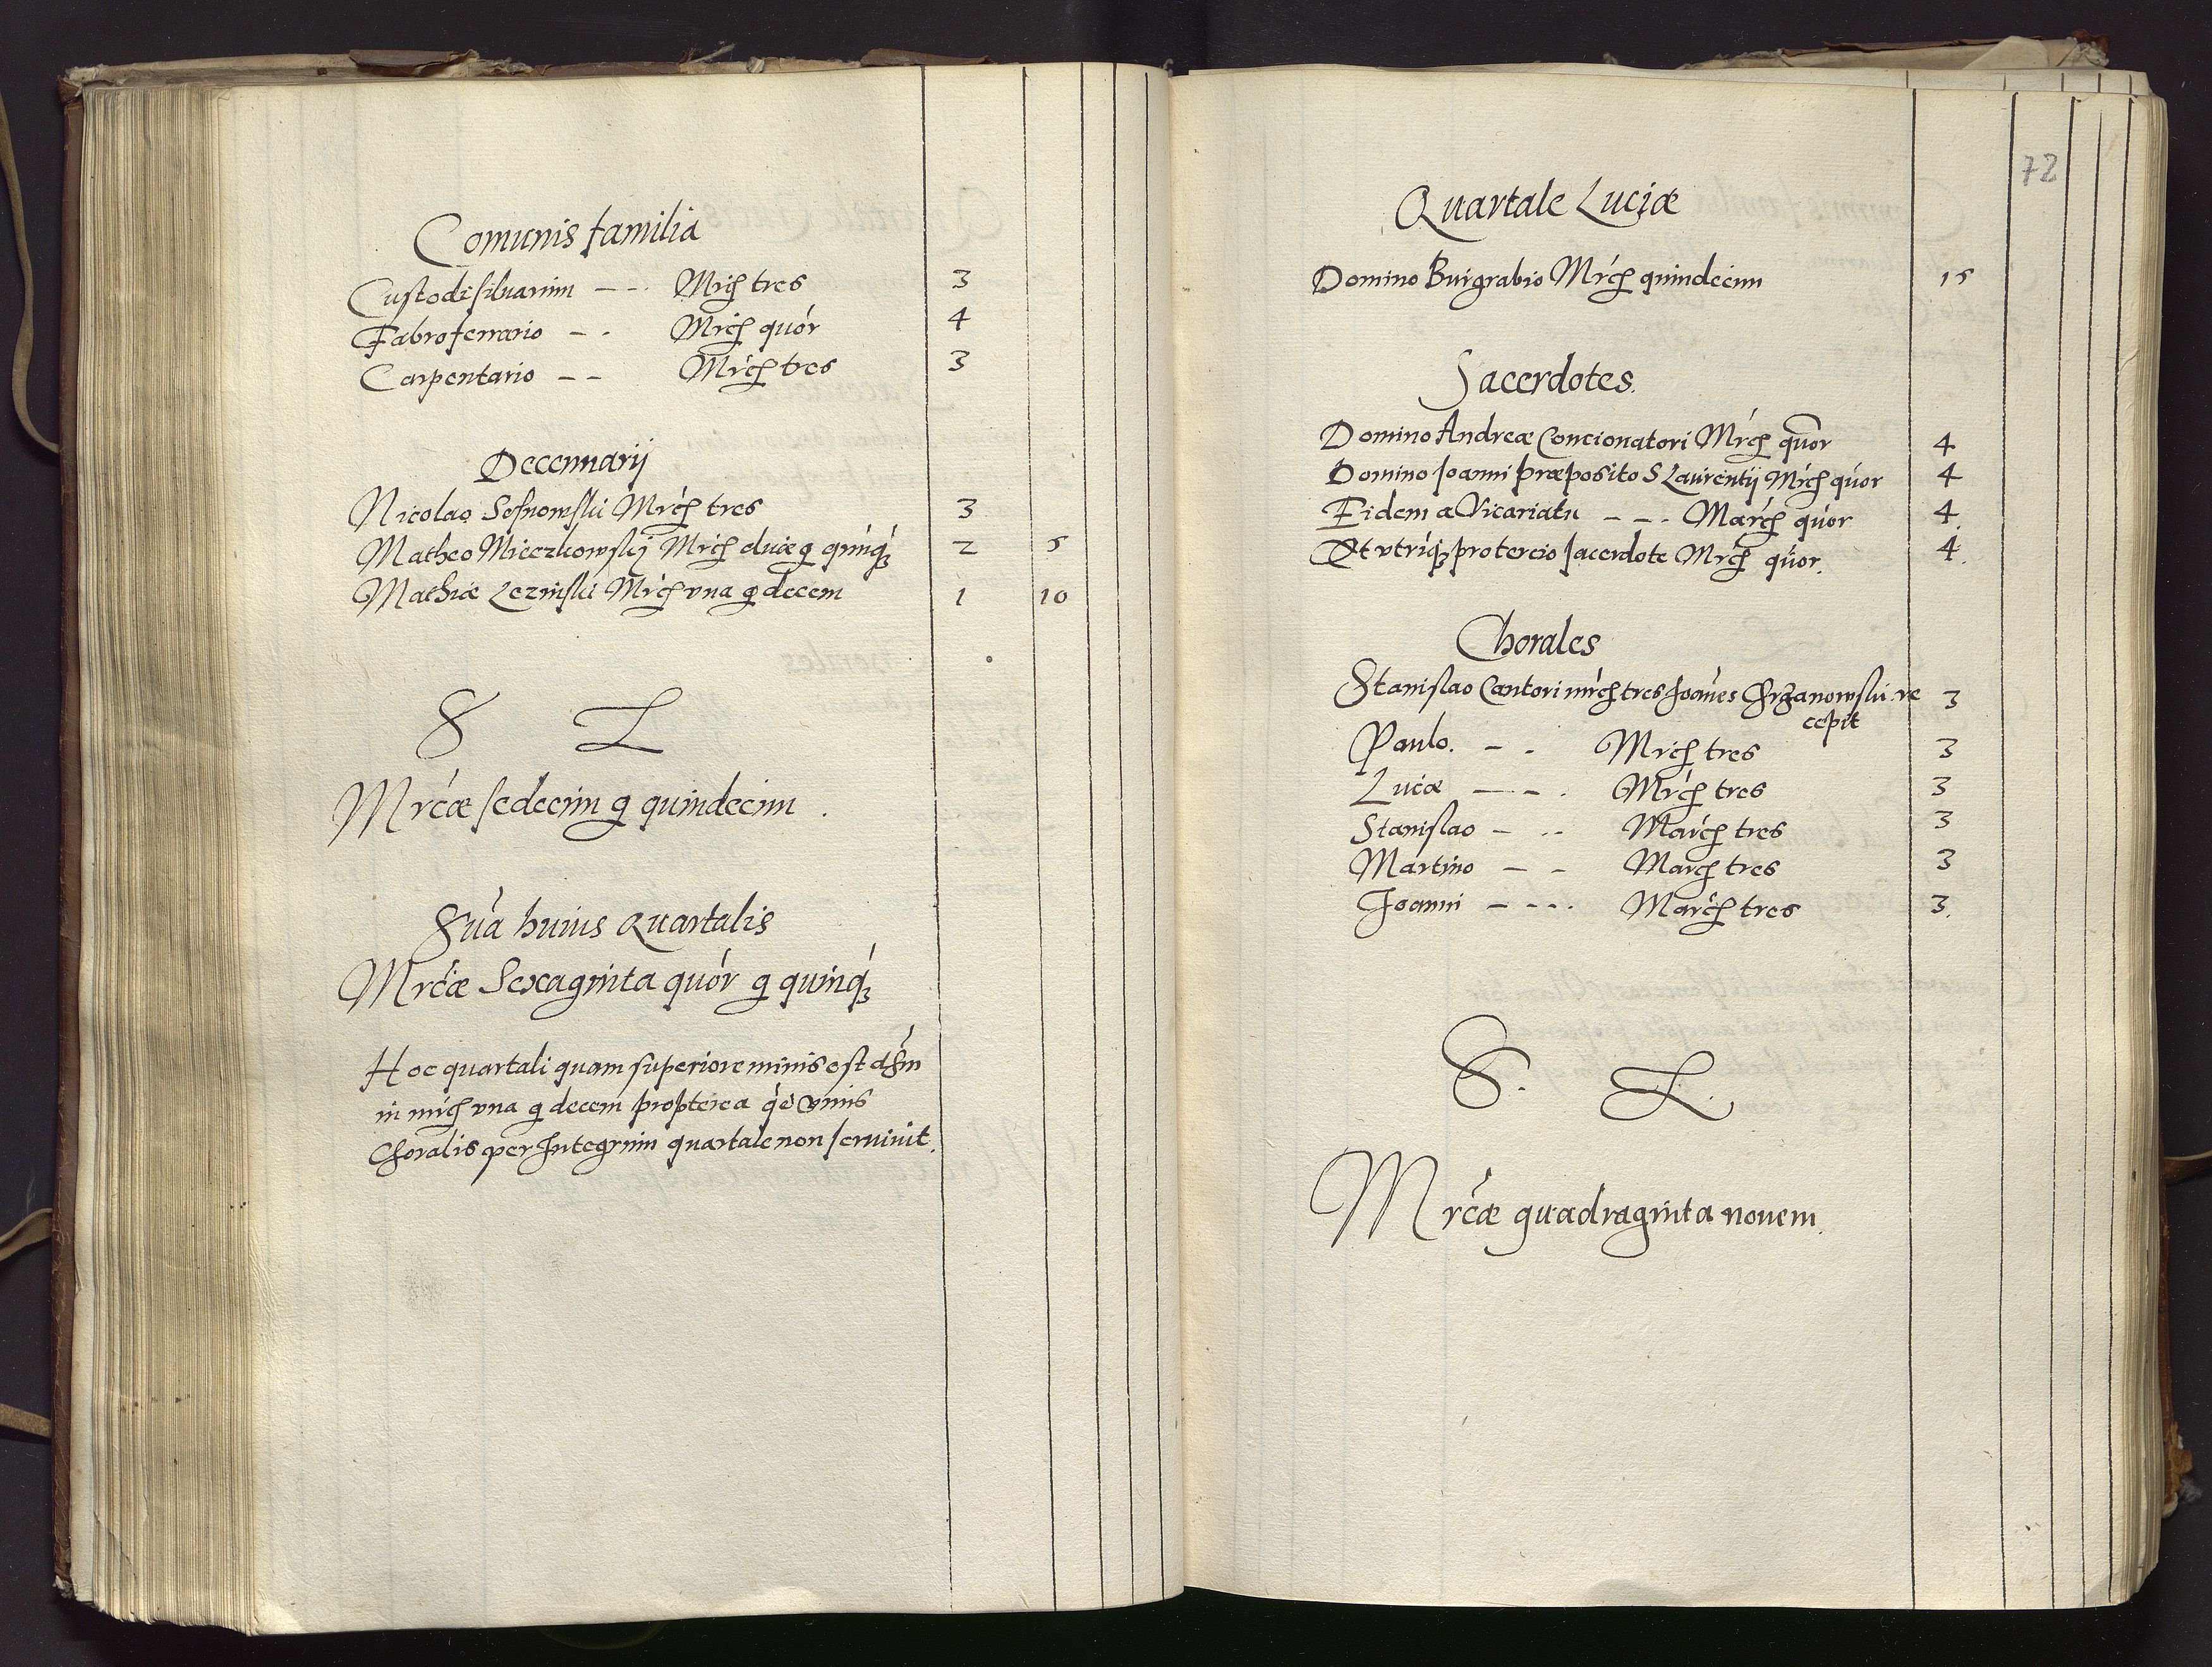 Comunis familia
Custodi siluarum — - . Mrch tres 3
Fabro ferrario — . Mrch quor 4
Carpentario — — Mrch tres 3
Decennarij
Nicolao Sosnowski Mrch tres 3
Matheo Mieczkowskj Mrch duæ g quinq3 2 5
Mathiæ Lezinski Mrch vna g decem 1 10
S L
Mrcæ sedecim g quindecim .
Sua huius Quartalis
Mrcæ Sexaginta quor g quinq3
Hoc quartali quam superiore minus est
in mrch vna g decem propterea vnus
Choralis per Integrum quartale non seruiuit.
72
Quartale Luciæ
Domino Burgrabio Mrch quindecim 15
Sacerdotes.
Domino Andreæ Concionatori Mrch quor 4
Domino Joanni præposito S Laurentij Mrch quor 4
Eidem a Vicariatu — — . March quor 4.
Et vtriq3 pro tercio sacerdote Mrch quor. 4.
Chorales
Stanislao Cantori mrch tres Joanes Chrzanowski re 3
cepit
Paulo. — . Mrch tres 3
Lucæ — - . Mrch tres 3
Stanislao — .. March tres 3
Martino — — March tres 3
Joanni — - - . March tres 3.
S. L.
Mrcæ quadraginta nouem.